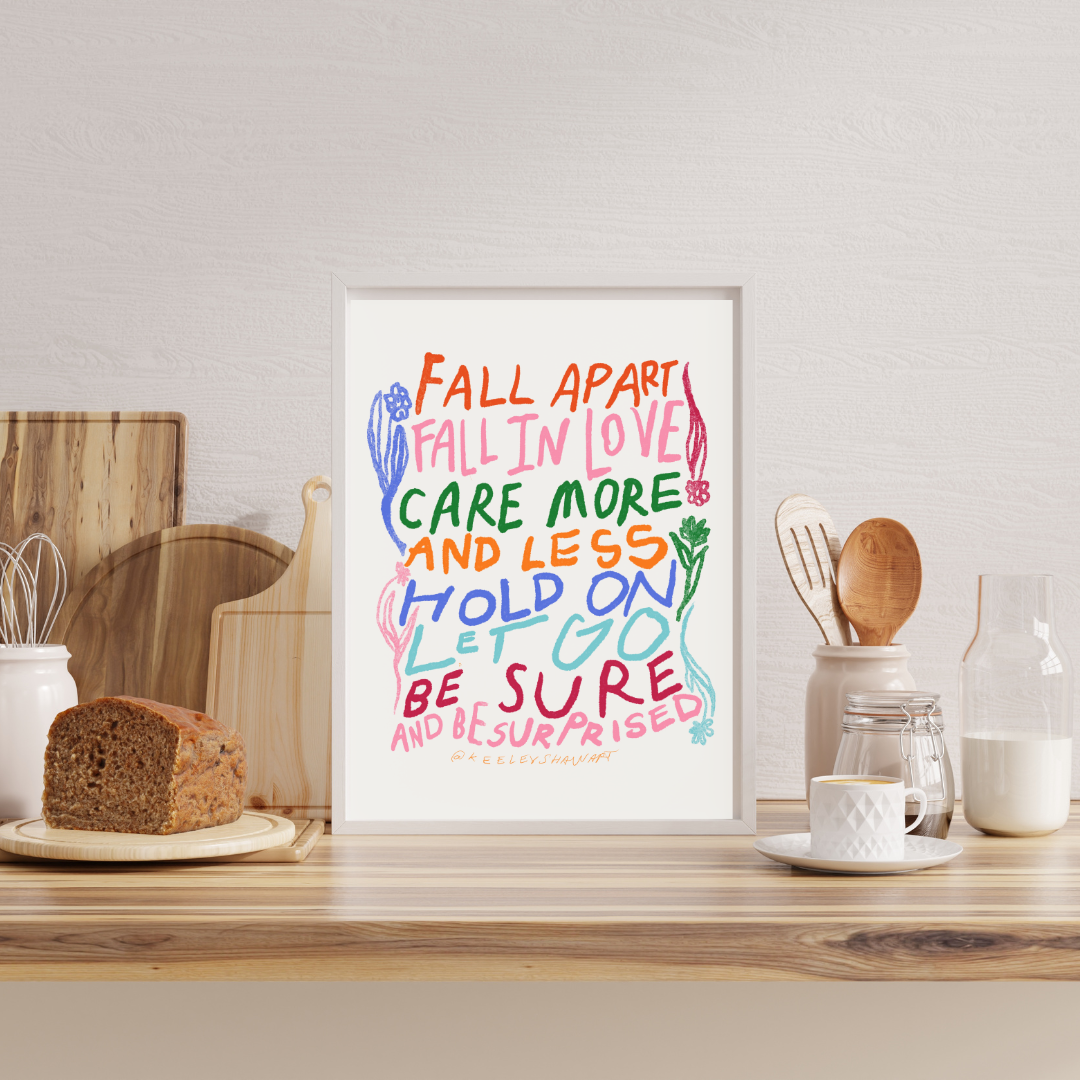 FALL APART
FALL IN LOVE
CARE MORE
AND LESS
HOLD ON
LET GO
BE SURE
AND BE SURPRISED
@KEELEYSHAWART